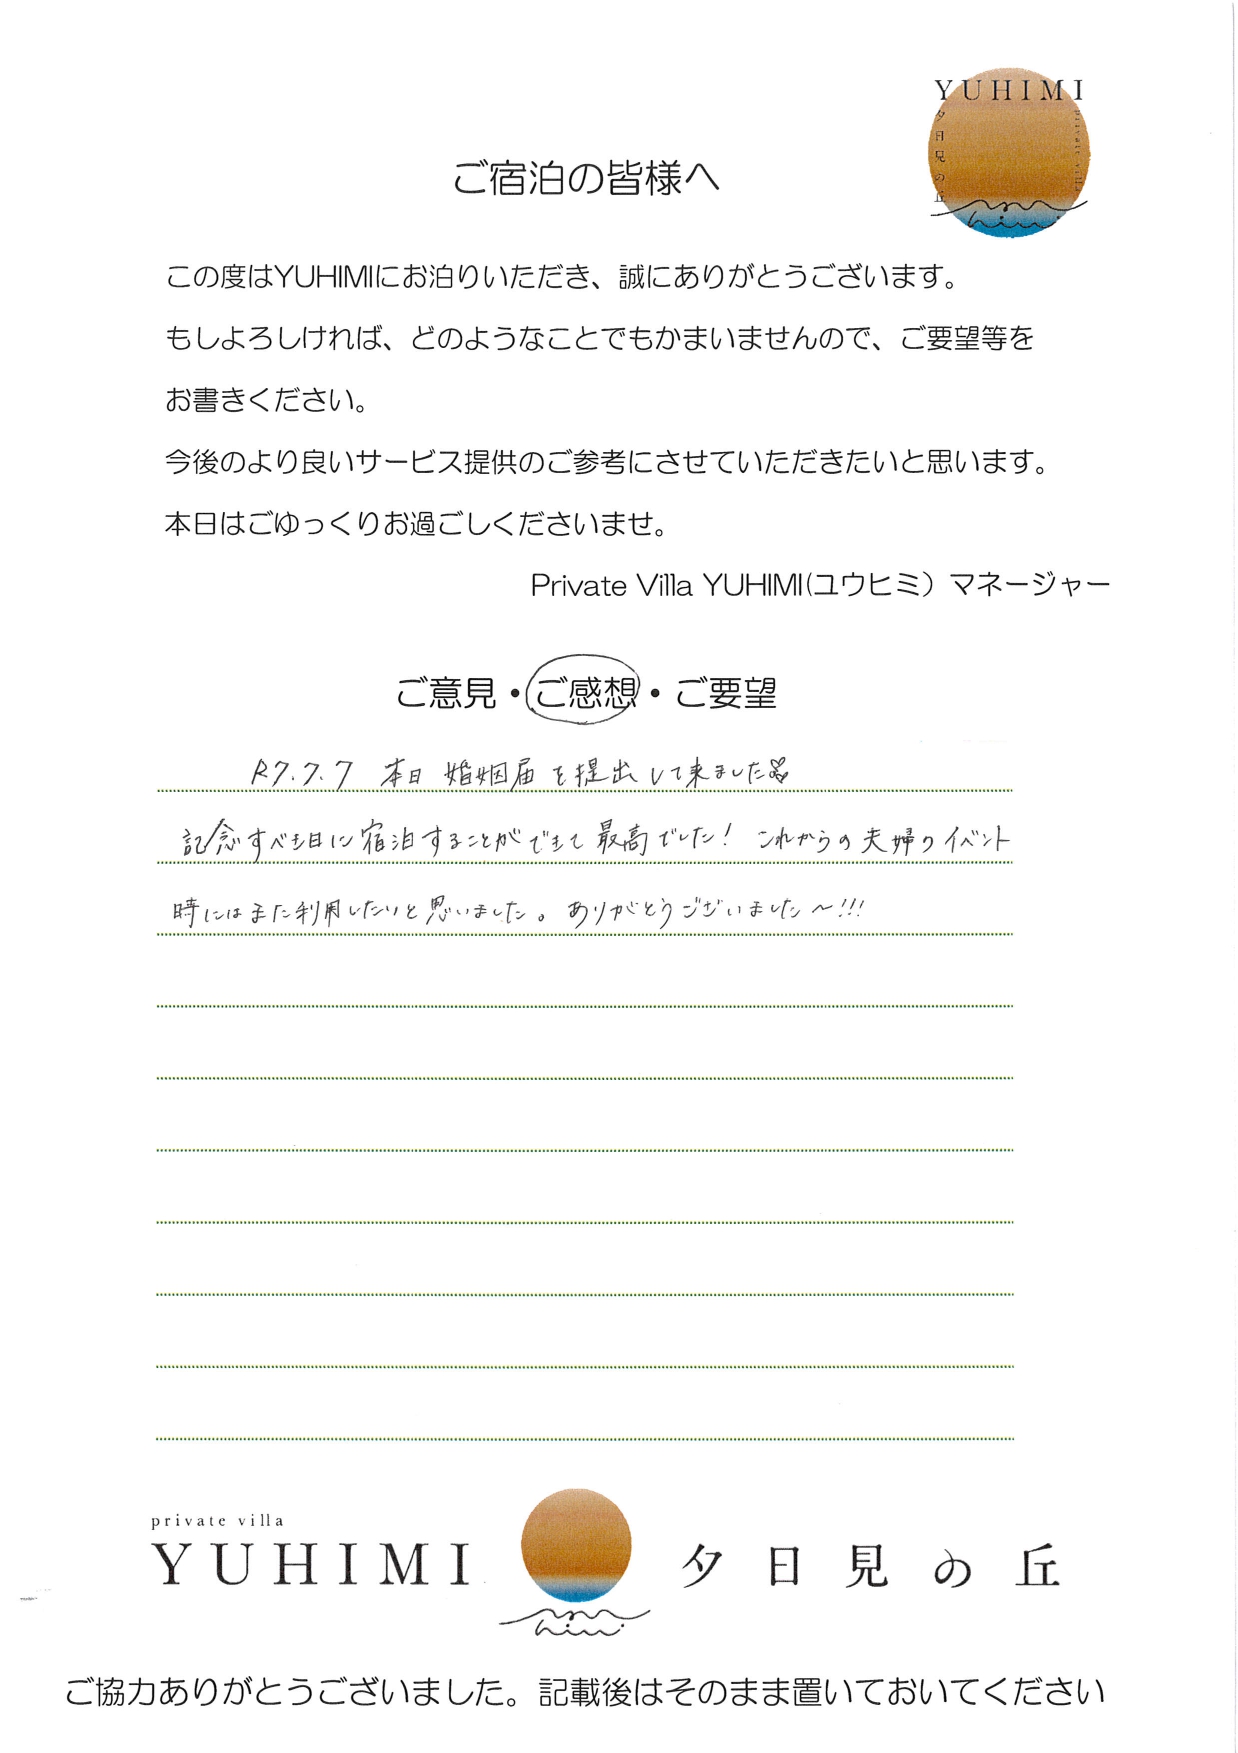 YUHIMI
夕日見の丘
private villa
ご宿泊の皆様へ
この度はYUHIMIにお泊りいただき、誠にありがとうございます。
もしよろしければ、どのようなことでもかまいませんので、ご要望等を
お書きください。
今後のより良いサービス提供のご参考にさせていただきたいと思います。
本日はごゆっくりお過ごしくださいませ。
Private Villa YUHIMI(ユウヒミ）マネージャー
ご意見・ご感想・ご要望
R7.7.7 本日 婚姻届を提出して来ました
記念すべき日に宿泊することができて最高でした! これからの夫婦のイベント
時にはまた利用したいと思いました。ありがとうございました〜!!!
private villa
YUHIMI 夕日見の丘
ご協力ありがとうございました。記載後はそのまま置いておいてください